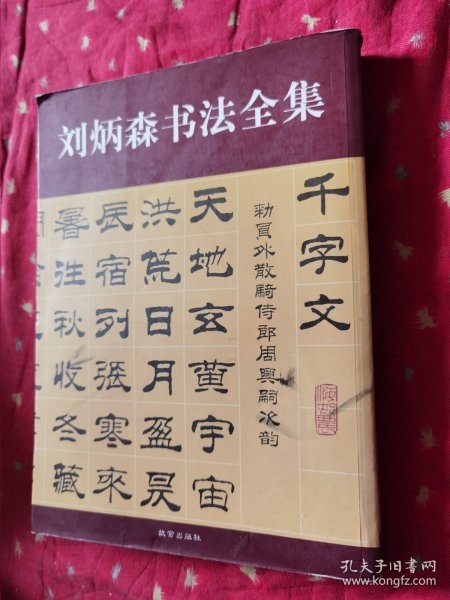 刘炳森书法全集
千字文
勑員外散騎侍郎周興嗣次韵
天地玄黃宇宙
洪荒日月盈昃
辰宿列張寒來
暑往秋收冬藏
故宫出版社
孔夫子旧书网
www.kongfz.com